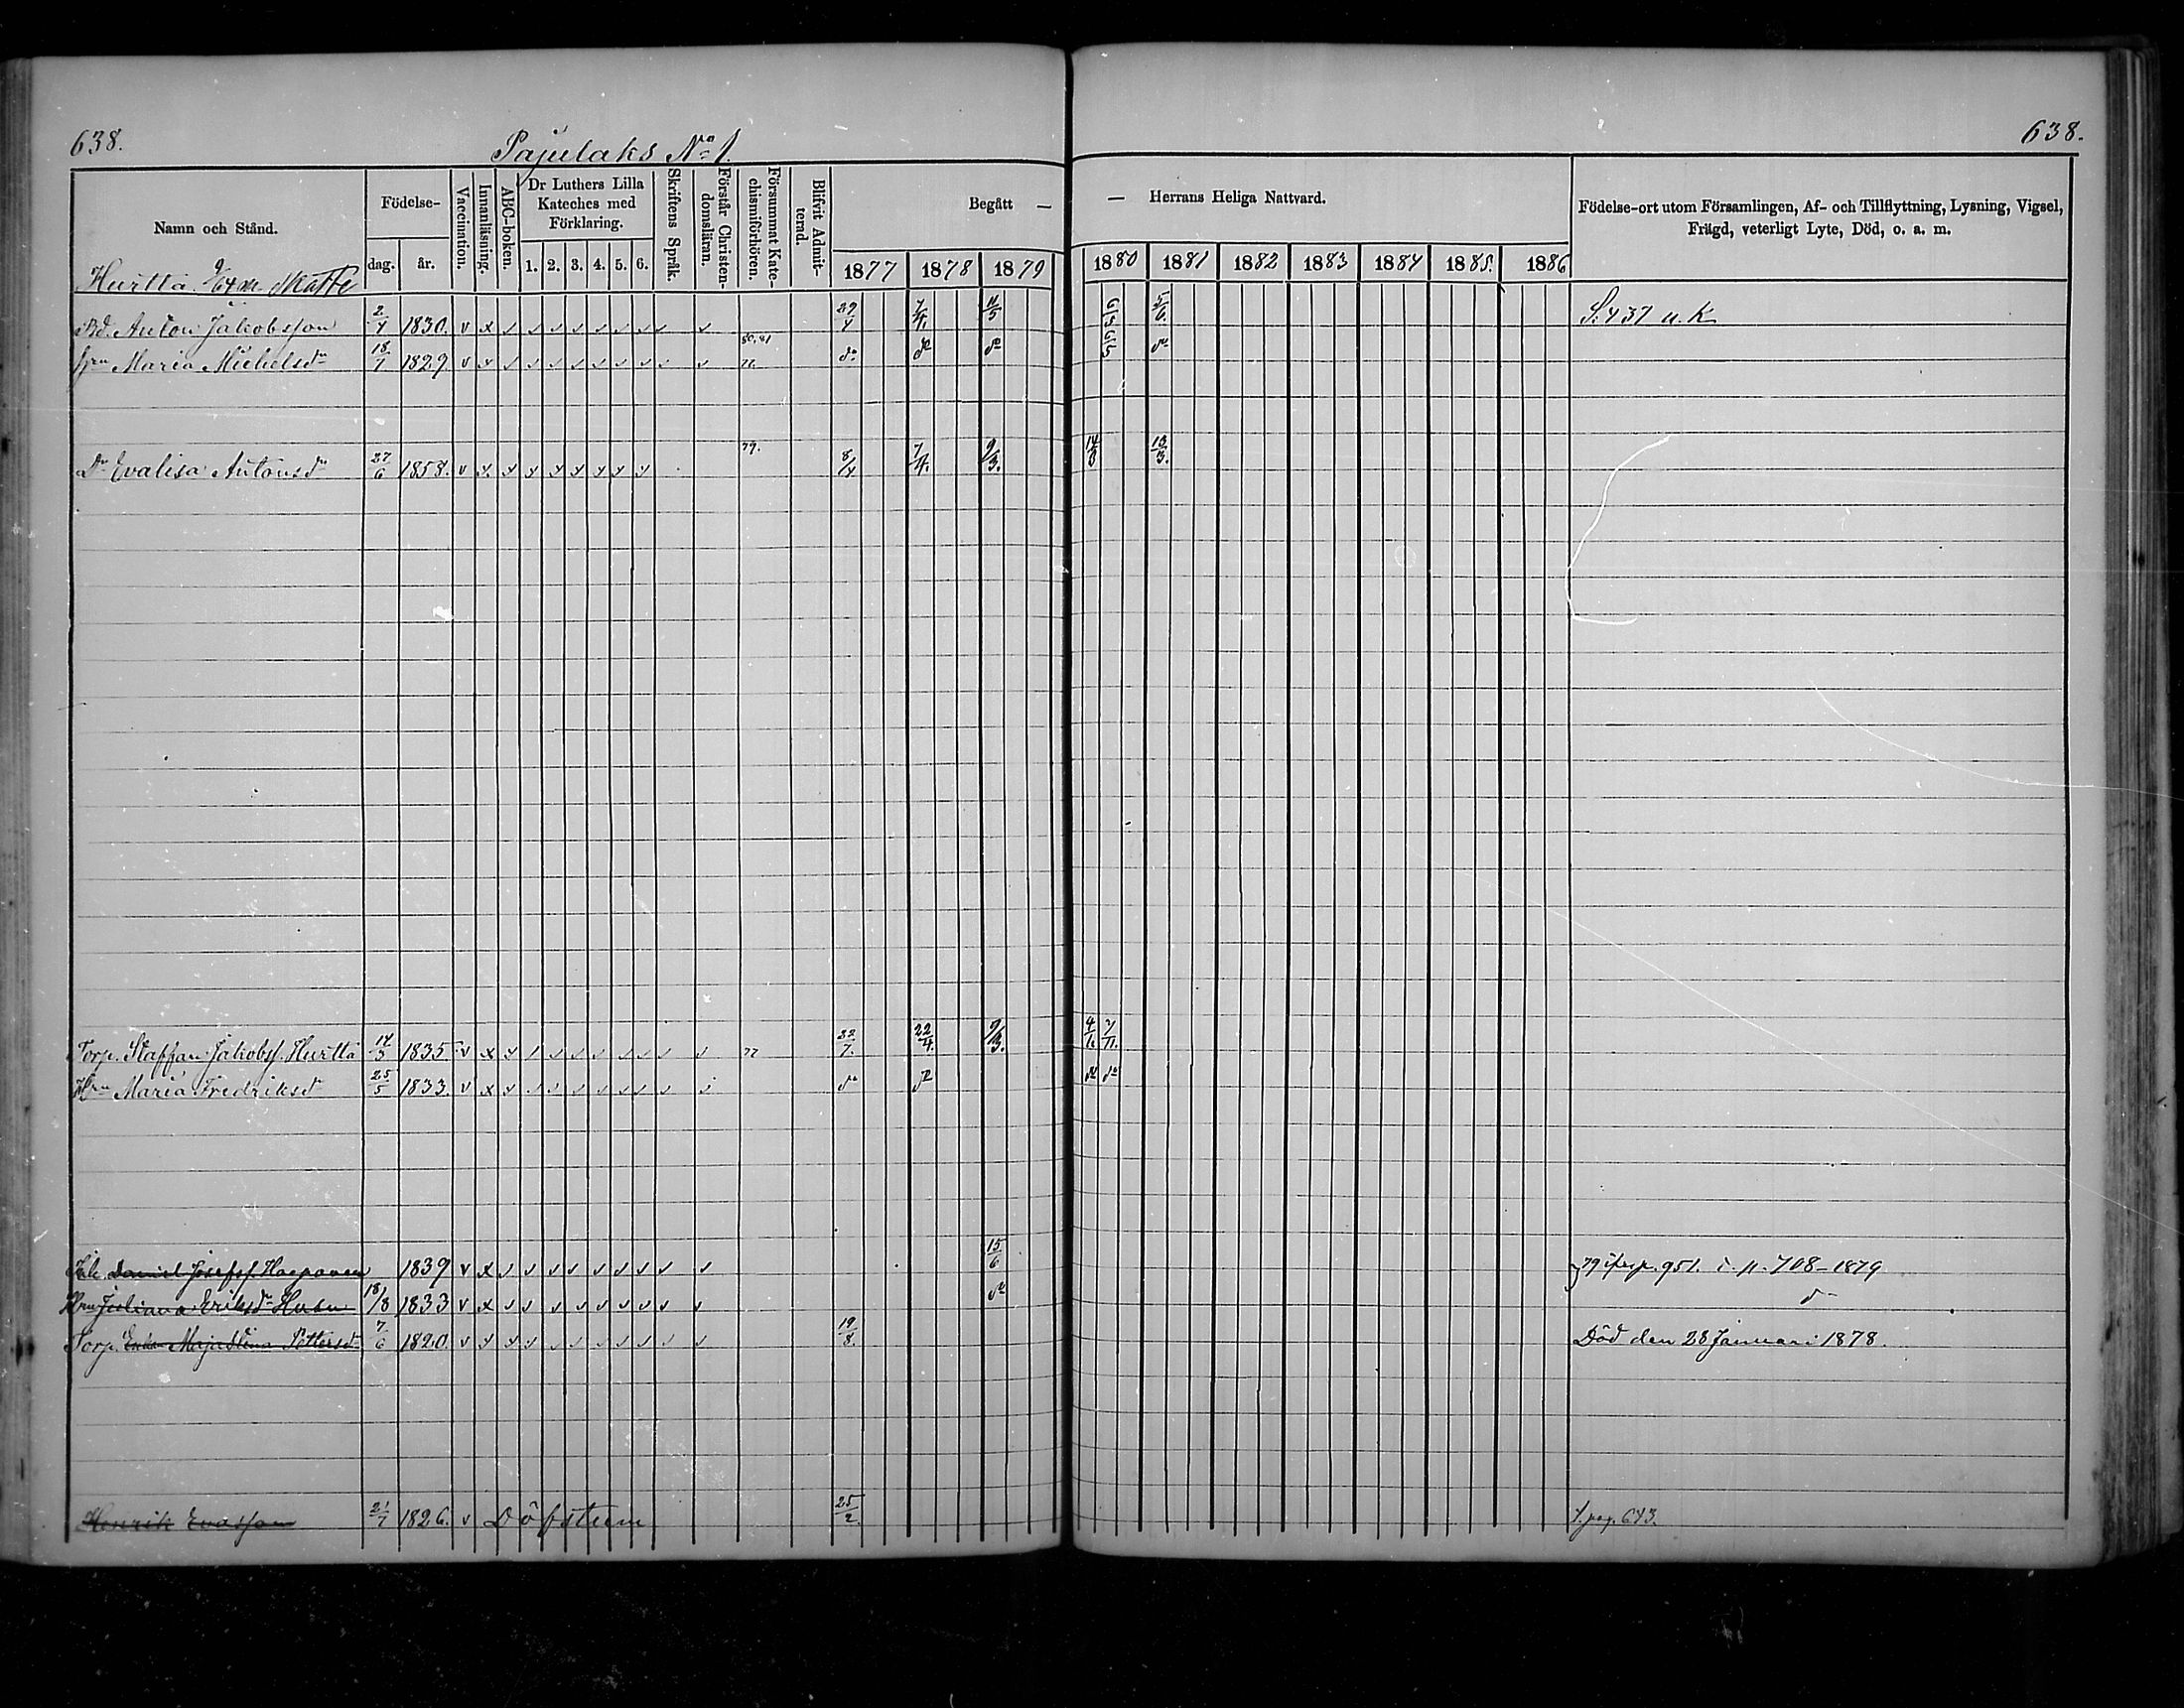 638.
Pajulaks No 1.
638.
Namn och Stånd.
Födelse-
dag.
år.
Vaccination.
Innanläsning.
ABC-boken.
Dr Luthers Lilla
Kateches med
Förklaring.
1. 2. 3. 4. 5. 6.
Skriftens Språk.
Förstår Christen-
domsläran.
Försummat Kate-
chismiförhören.
Blifvit Admit-
terad.
Begått —
— Herrans Heliga Nattvard.
1877 1878 1879 1880 1881 1882 1883 1884 1885. 1886
Födelse-ort utom Församlingen, Af- och Tillflyttning, Lysning, Vigsel,
Frägd, veterligt Lyte, Död, o. a. m.
Hurtta
Bd. Anton Jakobsson 2/4 1830. v x 29/4 7/4. 11/5 5/6. S. 437 u. k
Hrn Maria Michelsdr 18/7 1829 v x 80, 81 78. do do do do
Dr Evalisa Antonsdr 27/6 1858. v x x x x x x x x 79. 8/4 7/4. 9/3. 14/3 13/3.
Torp. Staffan Jakobss. Hurtta 14/3 1835 v x 77 22/7. 22/4. 9/3. 7/11.
Hrn Maria Fredriksdr 25/5 1833. v x do do do do
Daniel Josefss. Haapanen 1839 v x 15/6 951. 708-1879
Hrn Juliana Eriksdr 18/8 1833 v x do
Torp. Enka Maja Stina Pettersdr 7/6 1820. v x x 19/8. Död den 28 Januari 1878.
Henrik Evasson 21/7 1826. v Döfstum 25/2. f. pag. 643.